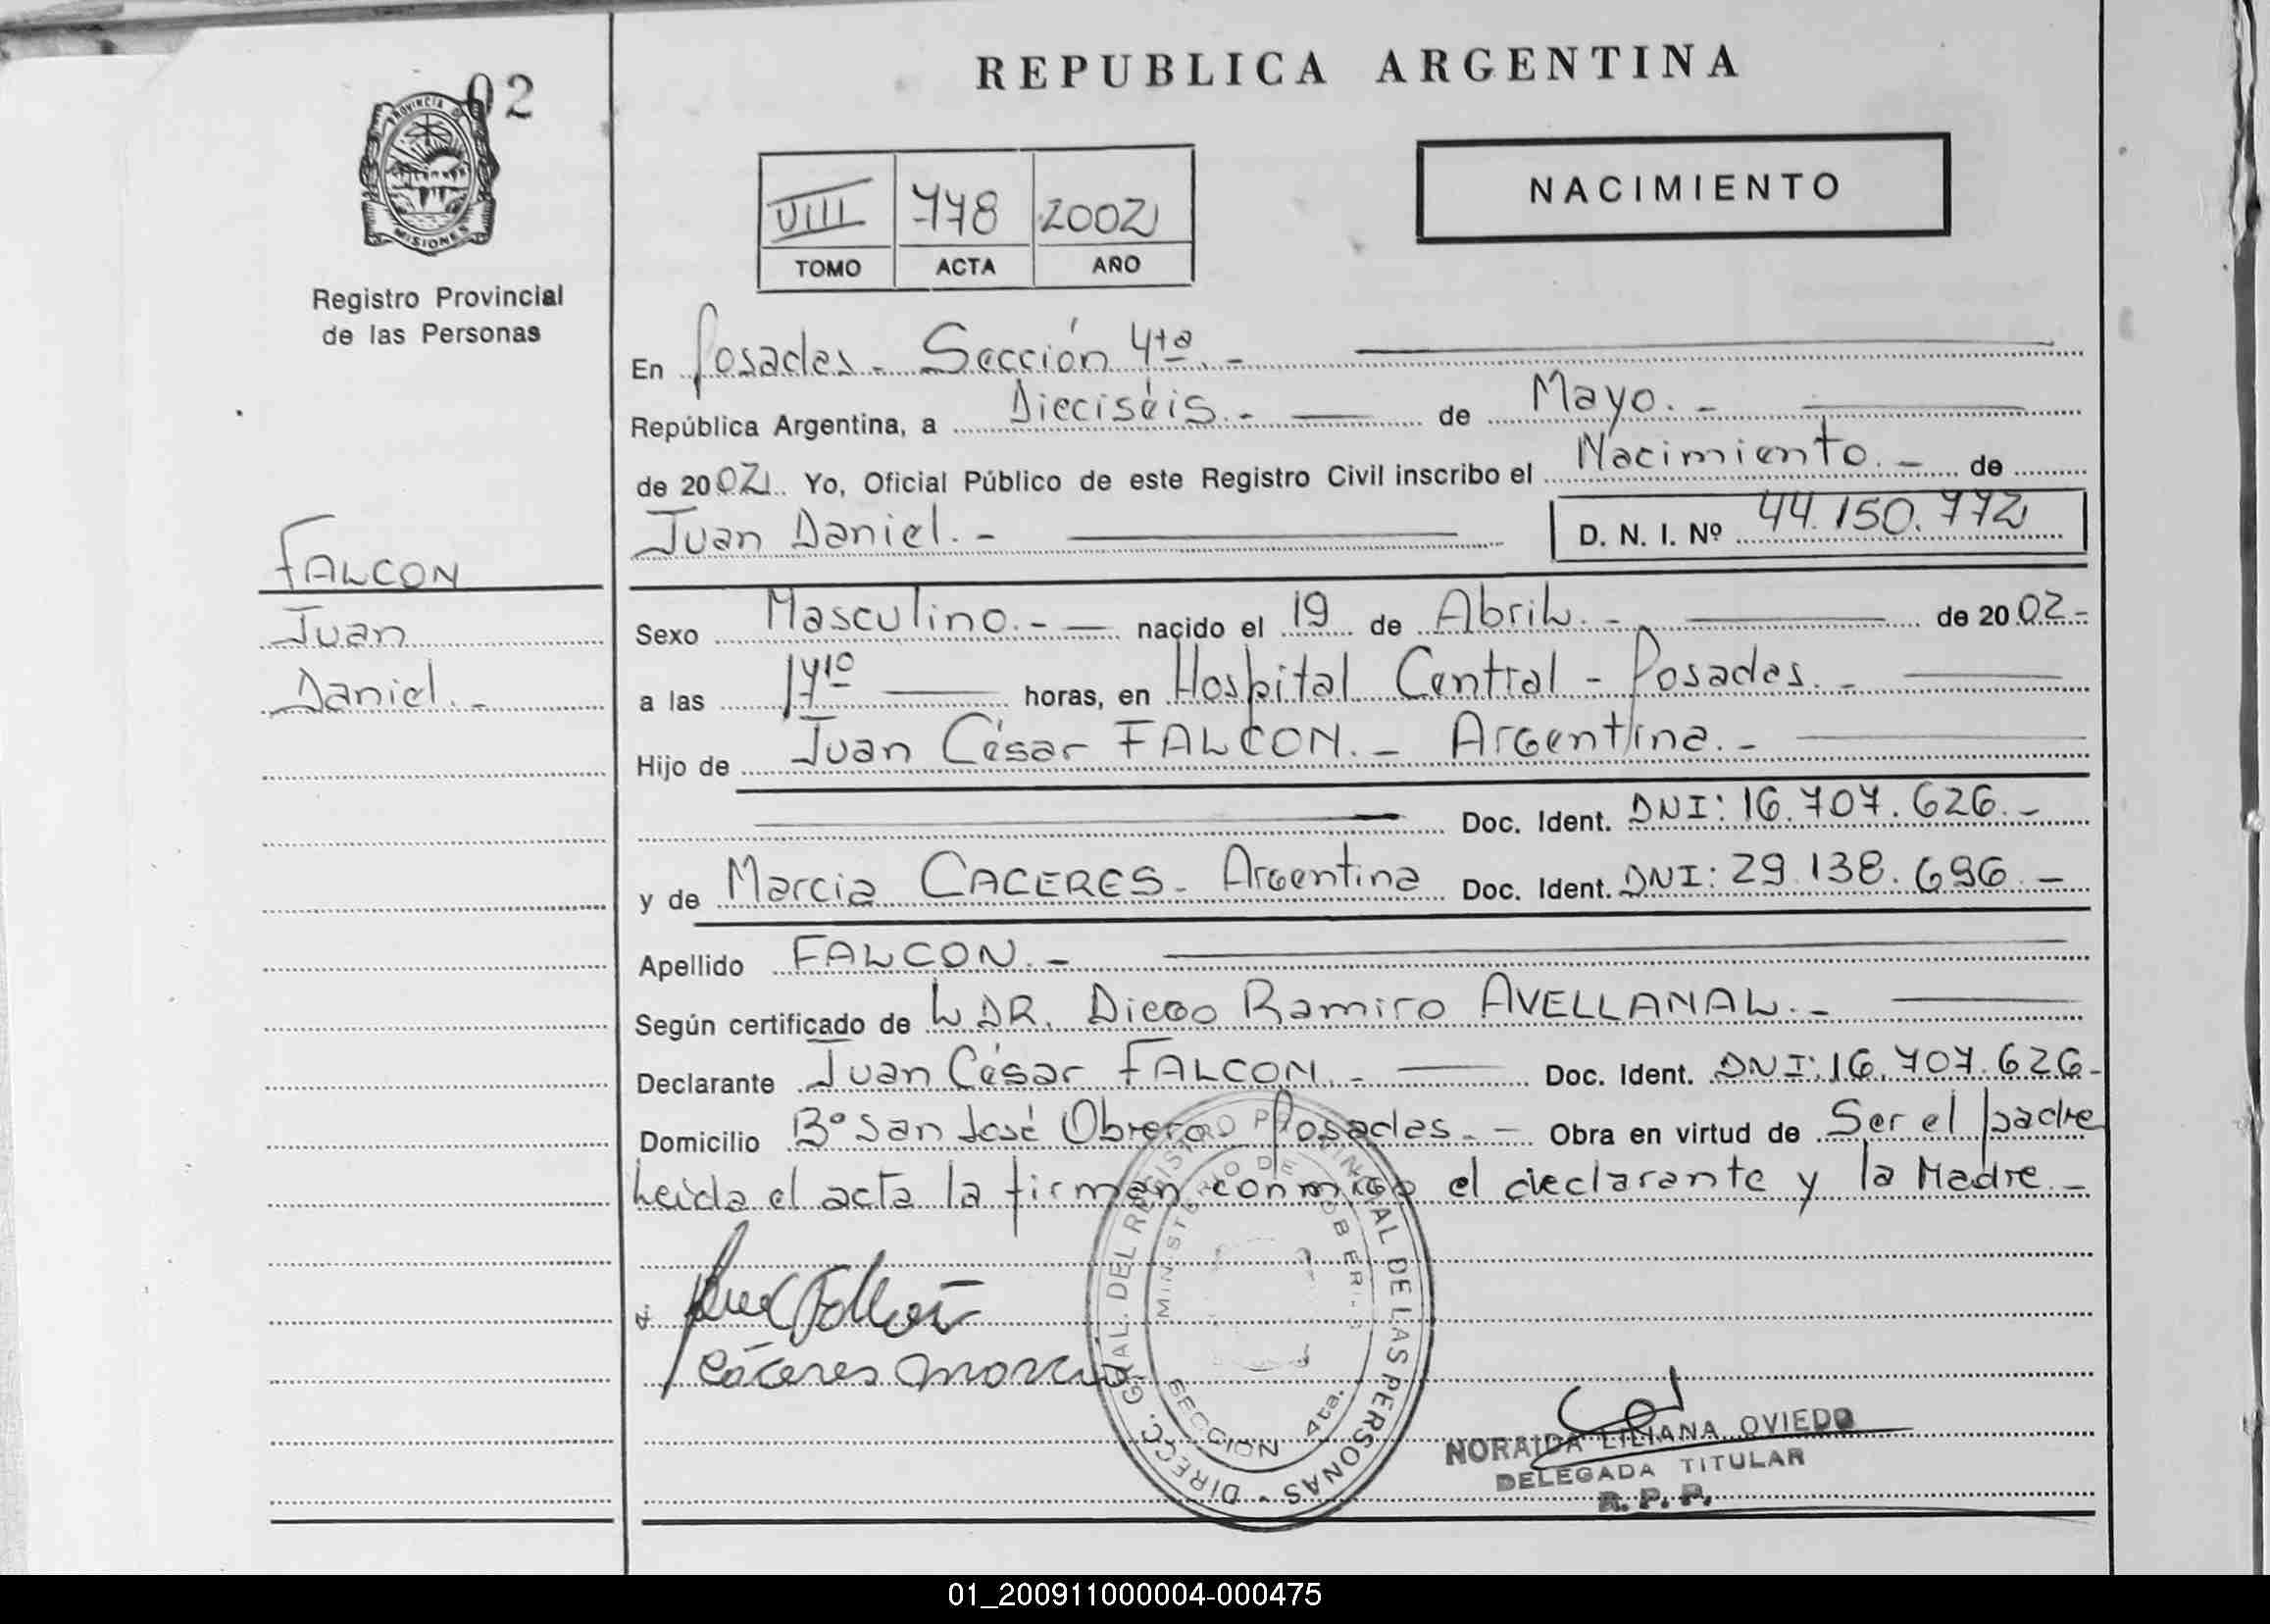 02
PROVINCIA DE
MISIONES
Registro Provincial
de las Personas
FALCON
Juan
Daniel.-
REPUBLICA ARGENTINA
VIII 778 2002
TOMO ACTA AÑO
NACIMIENTO
En Posadas - Sección 4ta.-
República Argentina, a Dieciséis.- de Mayo.-
de 2002. Yo, Oficial Público de este Registro Civil inscribo el Nacimiento.- de
Juan Daniel.- D. N. I. Nº 44.150.772
Sexo Masculino.- nacido el 19 de Abril.- de 2002.-
a las horas, en Hospital Central - Posadas.-
Hijo de Juan César FALCON.- Argentina.-
Doc. Ident. DNI: 16.707.626.-
y de Marcia CACERES - Argentina Doc. Ident. DNI: 29.138.696.-
Apellido FALCON.-
Según certificado de L DR. Diego Ramiro AVELLANAL.-
Declarante Juan César FALCON.- Doc. Ident. DNI: 16.707.626-
Domicilio Bº San José Obrero - Posadas.- Obra en virtud de Ser el padre
Leída el acta la firman conmigo el declarante y la Madre.-
Cáceres Marcia
DIRECC. GRAL. DEL REGISTRO PROVINCIAL DE LAS PERSONAS -
MINISTERIO DE GOBIERNO
SECCION 4ta.
NORAIDA LILIANA OVIEDO
DELEGADA TITULAR
R. P. P.
01_200911000004-000475